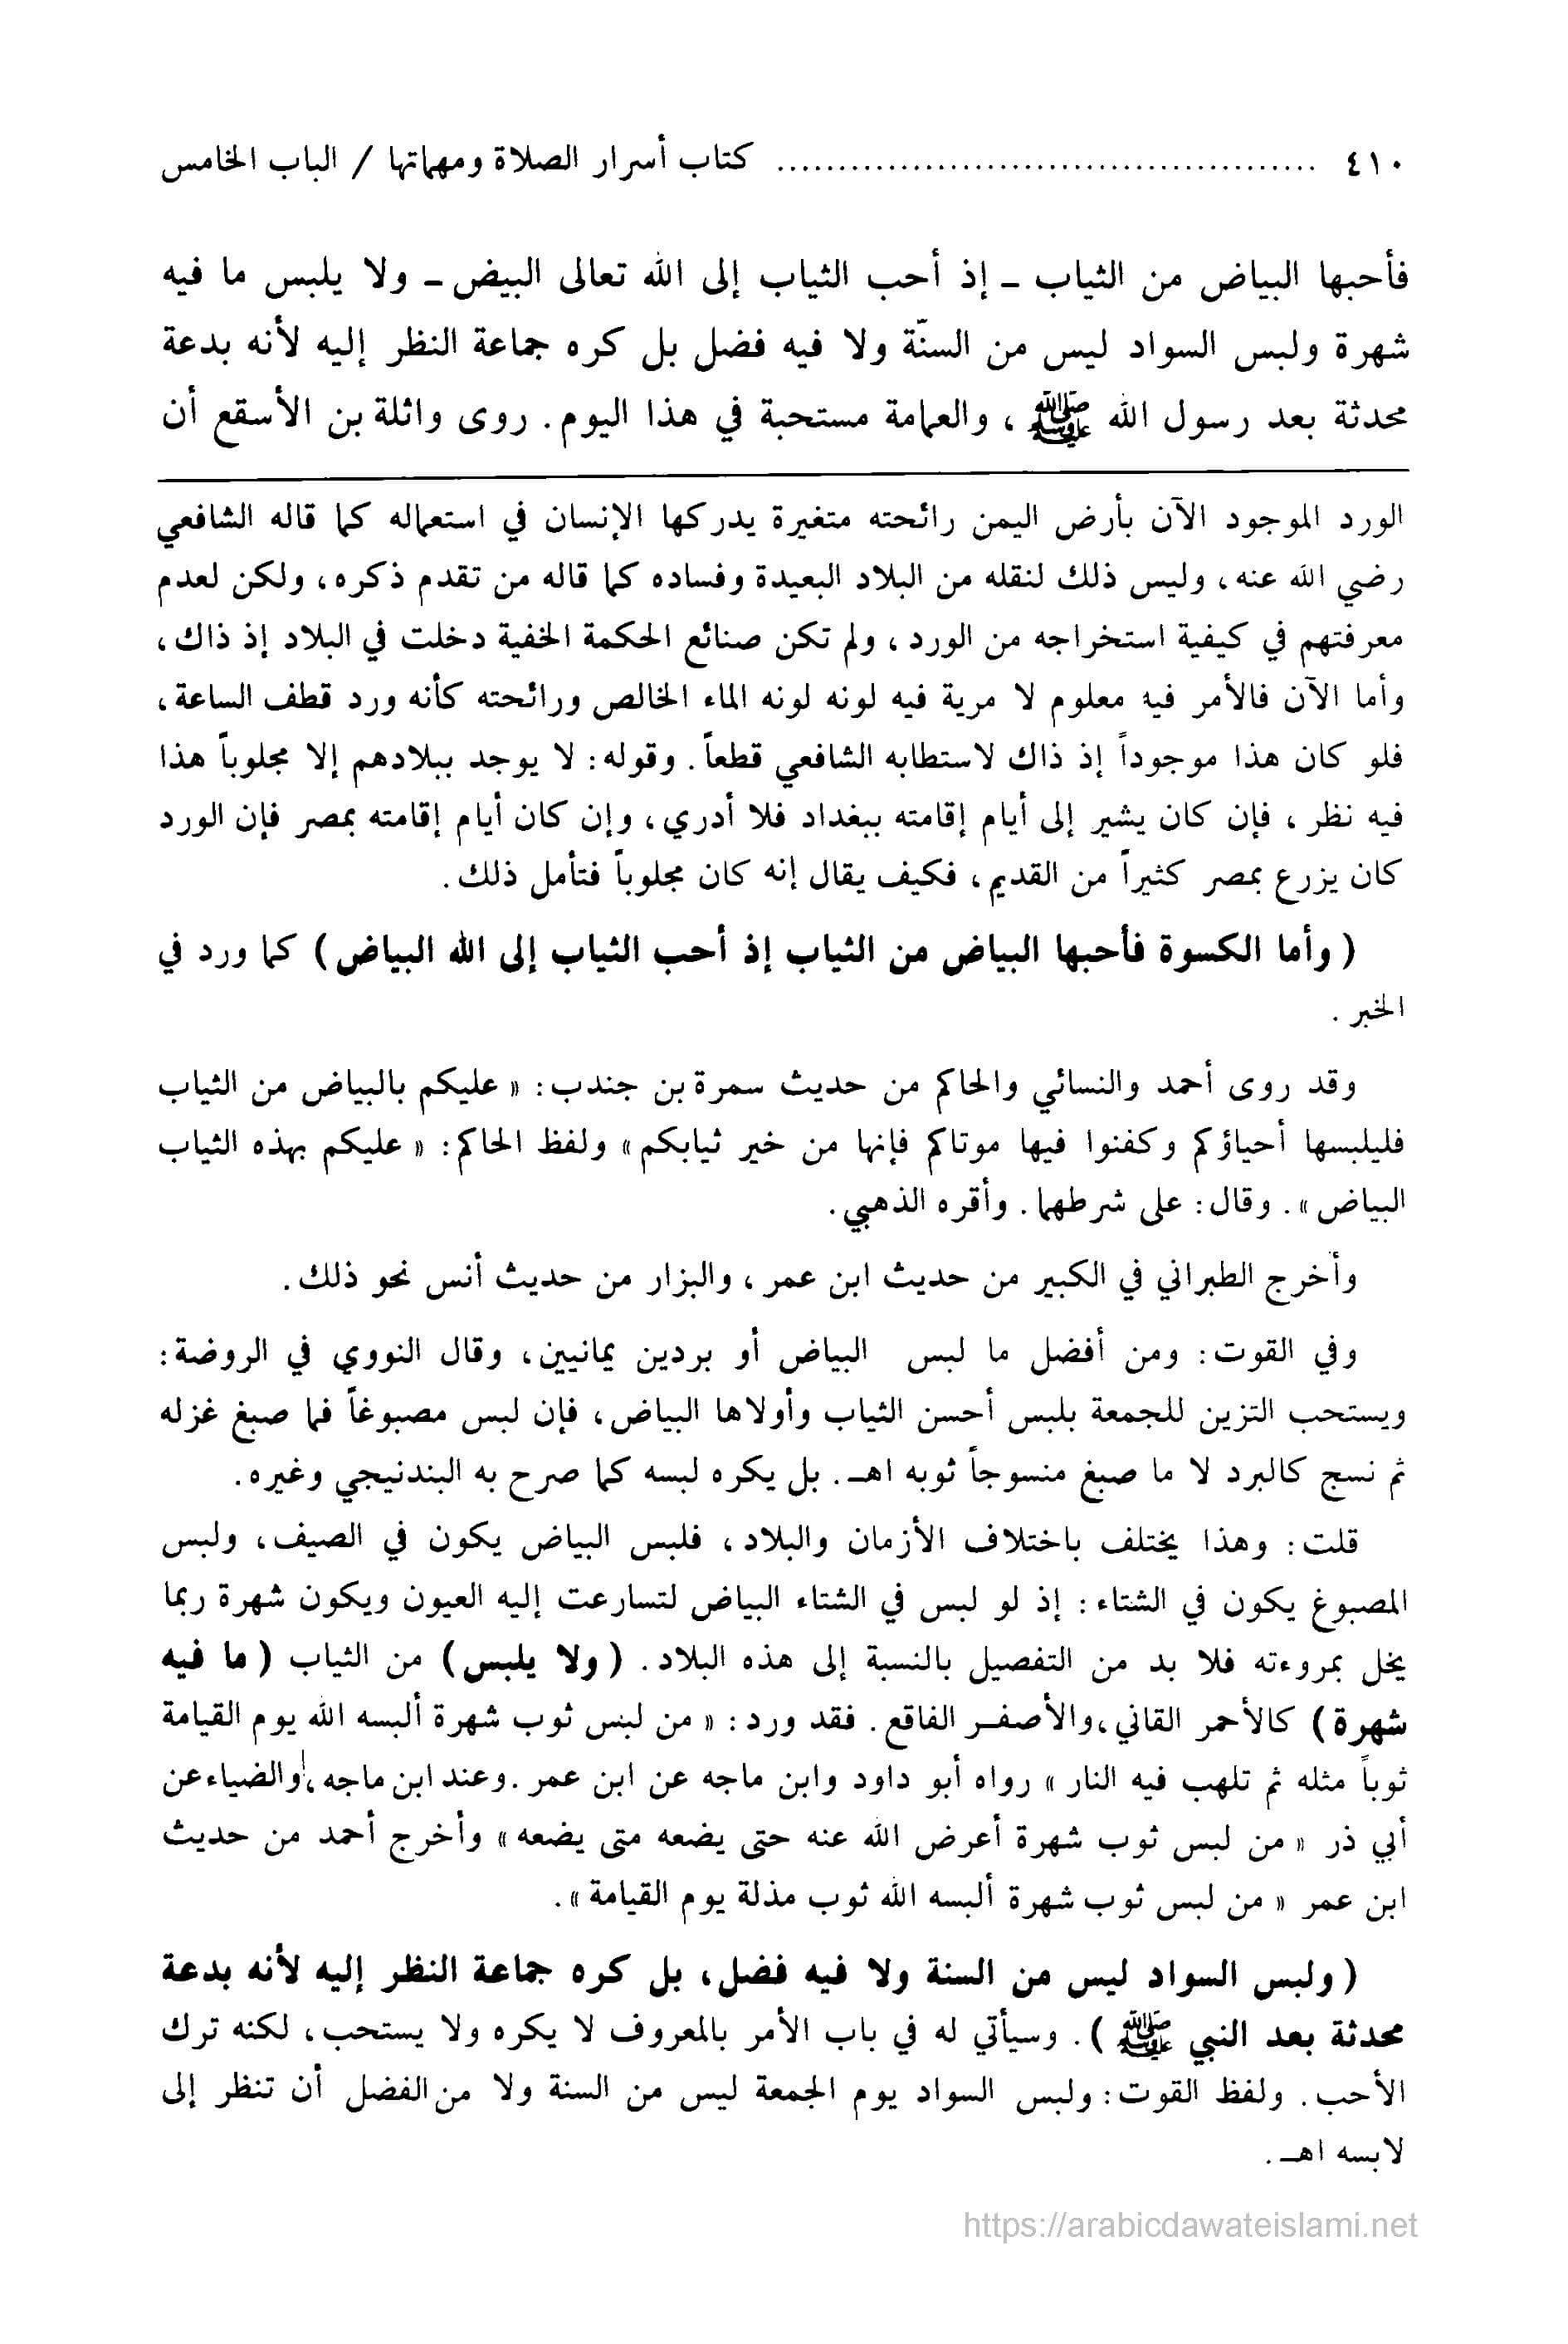 ٤١٠ ............................................ كتاب أسرار الصلاة ومهماتها / الباب الخامس
فأحبها البياض من الثياب ـ إذ أحب الثياب إلى الله تعالى البيض ـ ولا يلبس ما فيه
شهرة ولبس السواد ليس من السنّة ولا فيه فضل بل كره جماعة النظر إليه لأنه بدعة
محدثة بعد رسول الله ﷺ ، والعمامة مستحبة في هذا اليوم. روى واثلة بن الأسقع أن
الورد الموجود الآن بأرض اليمن رائحته متغيرة يدركها الإنسان في استعماله كما قاله الشافعي
رضي الله عنه، وليس ذلك لنقله من البلاد البعيدة وفساده كما قاله من تقدم ذكره، ولكن لعدم
معرفتهم في كيفية استخراجه من الورد، ولم تكن صنائع الحكمة الخفية دخلت في البلاد إذ ذاك،
وأما الآن فالأمر فيه معلوم لا مرية فيه لونه لونه الماء الخالص ورائحته كأنه ورد قطف الساعة،
فلو كان هذا موجوداً إذ ذاك لاستطابه الشافعي قطعاً. وقوله: لا يوجد ببلادهم إلا مجلوباً هذا
فيه نظر، فإن كان يشير إلى أيام إقامته ببغداد فلا أدري، وإن كان أيام إقامته بمصر فإن الورد
كان يزرع بمصر كثيراً من القديم، فكيف يقال إنه كان مجلوباً فتأمل ذلك.
( وأما الكسوة فأحبها البياض من الثياب إذ أحب الثياب إلى الله البياض) كما ورد في
الخبر .
وقد روى أحمد والنسائي والحاكم من حديث سمرة بن جندب: « عليكم بالبياض من الثياب
فليلبسها أحياؤكم وكفنوا فيها موتاكم فإنها من خير ثيابكم» ولفظ الحاكم: « عليكم بهذه الثياب
البياض ». وقال: على شرطهما. وأقره الذهبي.
وأخرج الطبراني في الكبير من حديث ابن عمر ، والبزار من حديث أنس نحو ذلك.
وفي القوت: ومن أفضل ما لبس البياض أو بردين يمانيين، وقال النووي في الروضة:
ويستحب التزين للجمعة بلبس أحسن الثياب وأولاها البياض، فإن لبس مصبوغاً فما صبغ غزله
ثم نسج كالبرد لا ما صبغ منسوجاً ثوبه اهـ. بل يكره لبسه كما صرح به البندنيجي وغيره.
قلت: وهذا يختلف باختلاف الأزمان والبلاد، فلبس البياض يكون في الصيف، ولبس
المصبوغ يكون في الشتاء: إذ لو لبس في الشتاء البياض لتسارعت إليه العيون ويكون شهرة ربما
يخل بمروءته فلا بد من التفصيل بالنسبة إلى هذه البلاد. ( ولا يلبس) من الثياب ( ما فيه
شهرة) كالأحمر القاني، والأصفر الفاقع. فقد ورد: « من لبس ثوب شهرة ألبسه الله يوم القيامة
ثوباً مثله ثم تلهب فيه النار » رواه أبو داود وابن ماجه عن ابن عمر. وعند ابن ماجه، والضياء عن
أبي ذر « من لبس ثوب شهرة أعرض الله عنه حتى يضعه متى يضعه» وأخرج أحمد من حديث
ابن عمر « من لبس ثوب شهرة ألبسه الله ثوب مذلة يوم القيامة ».
( ولبس السواد ليس من السنة ولا فيه فضل، بل كره جماعة النظر إليه لأنه بدعة
محدثة بعد النبي ﷺ ). وسيأتي له في باب الأمر بالمعروف لا يكره ولا يستحب، لكنه ترك
الأحب. ولفظ القوت: ولبس السواد يوم الجمعة ليس من السنة ولا من الفضل أن تنظر إلى
لابسه اهـ .
https://arabicdawateislami.net